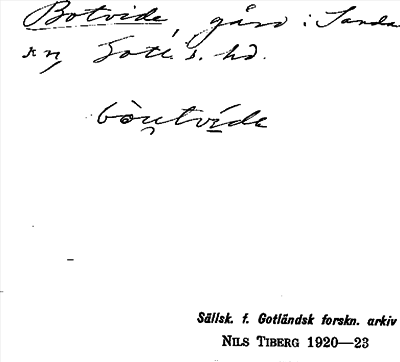 Botvide, gård i Sanda
sn, Gotl. s. hd.
bòu̯tvíde
Sällsk. f. Gotländsk forskn. arkiv
NILS TIBERG 1920—23